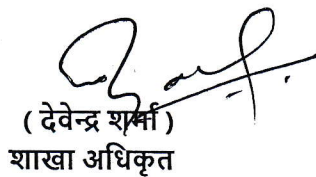 ( देवेन्द्र शर्मा )
शाखा अधिकृत